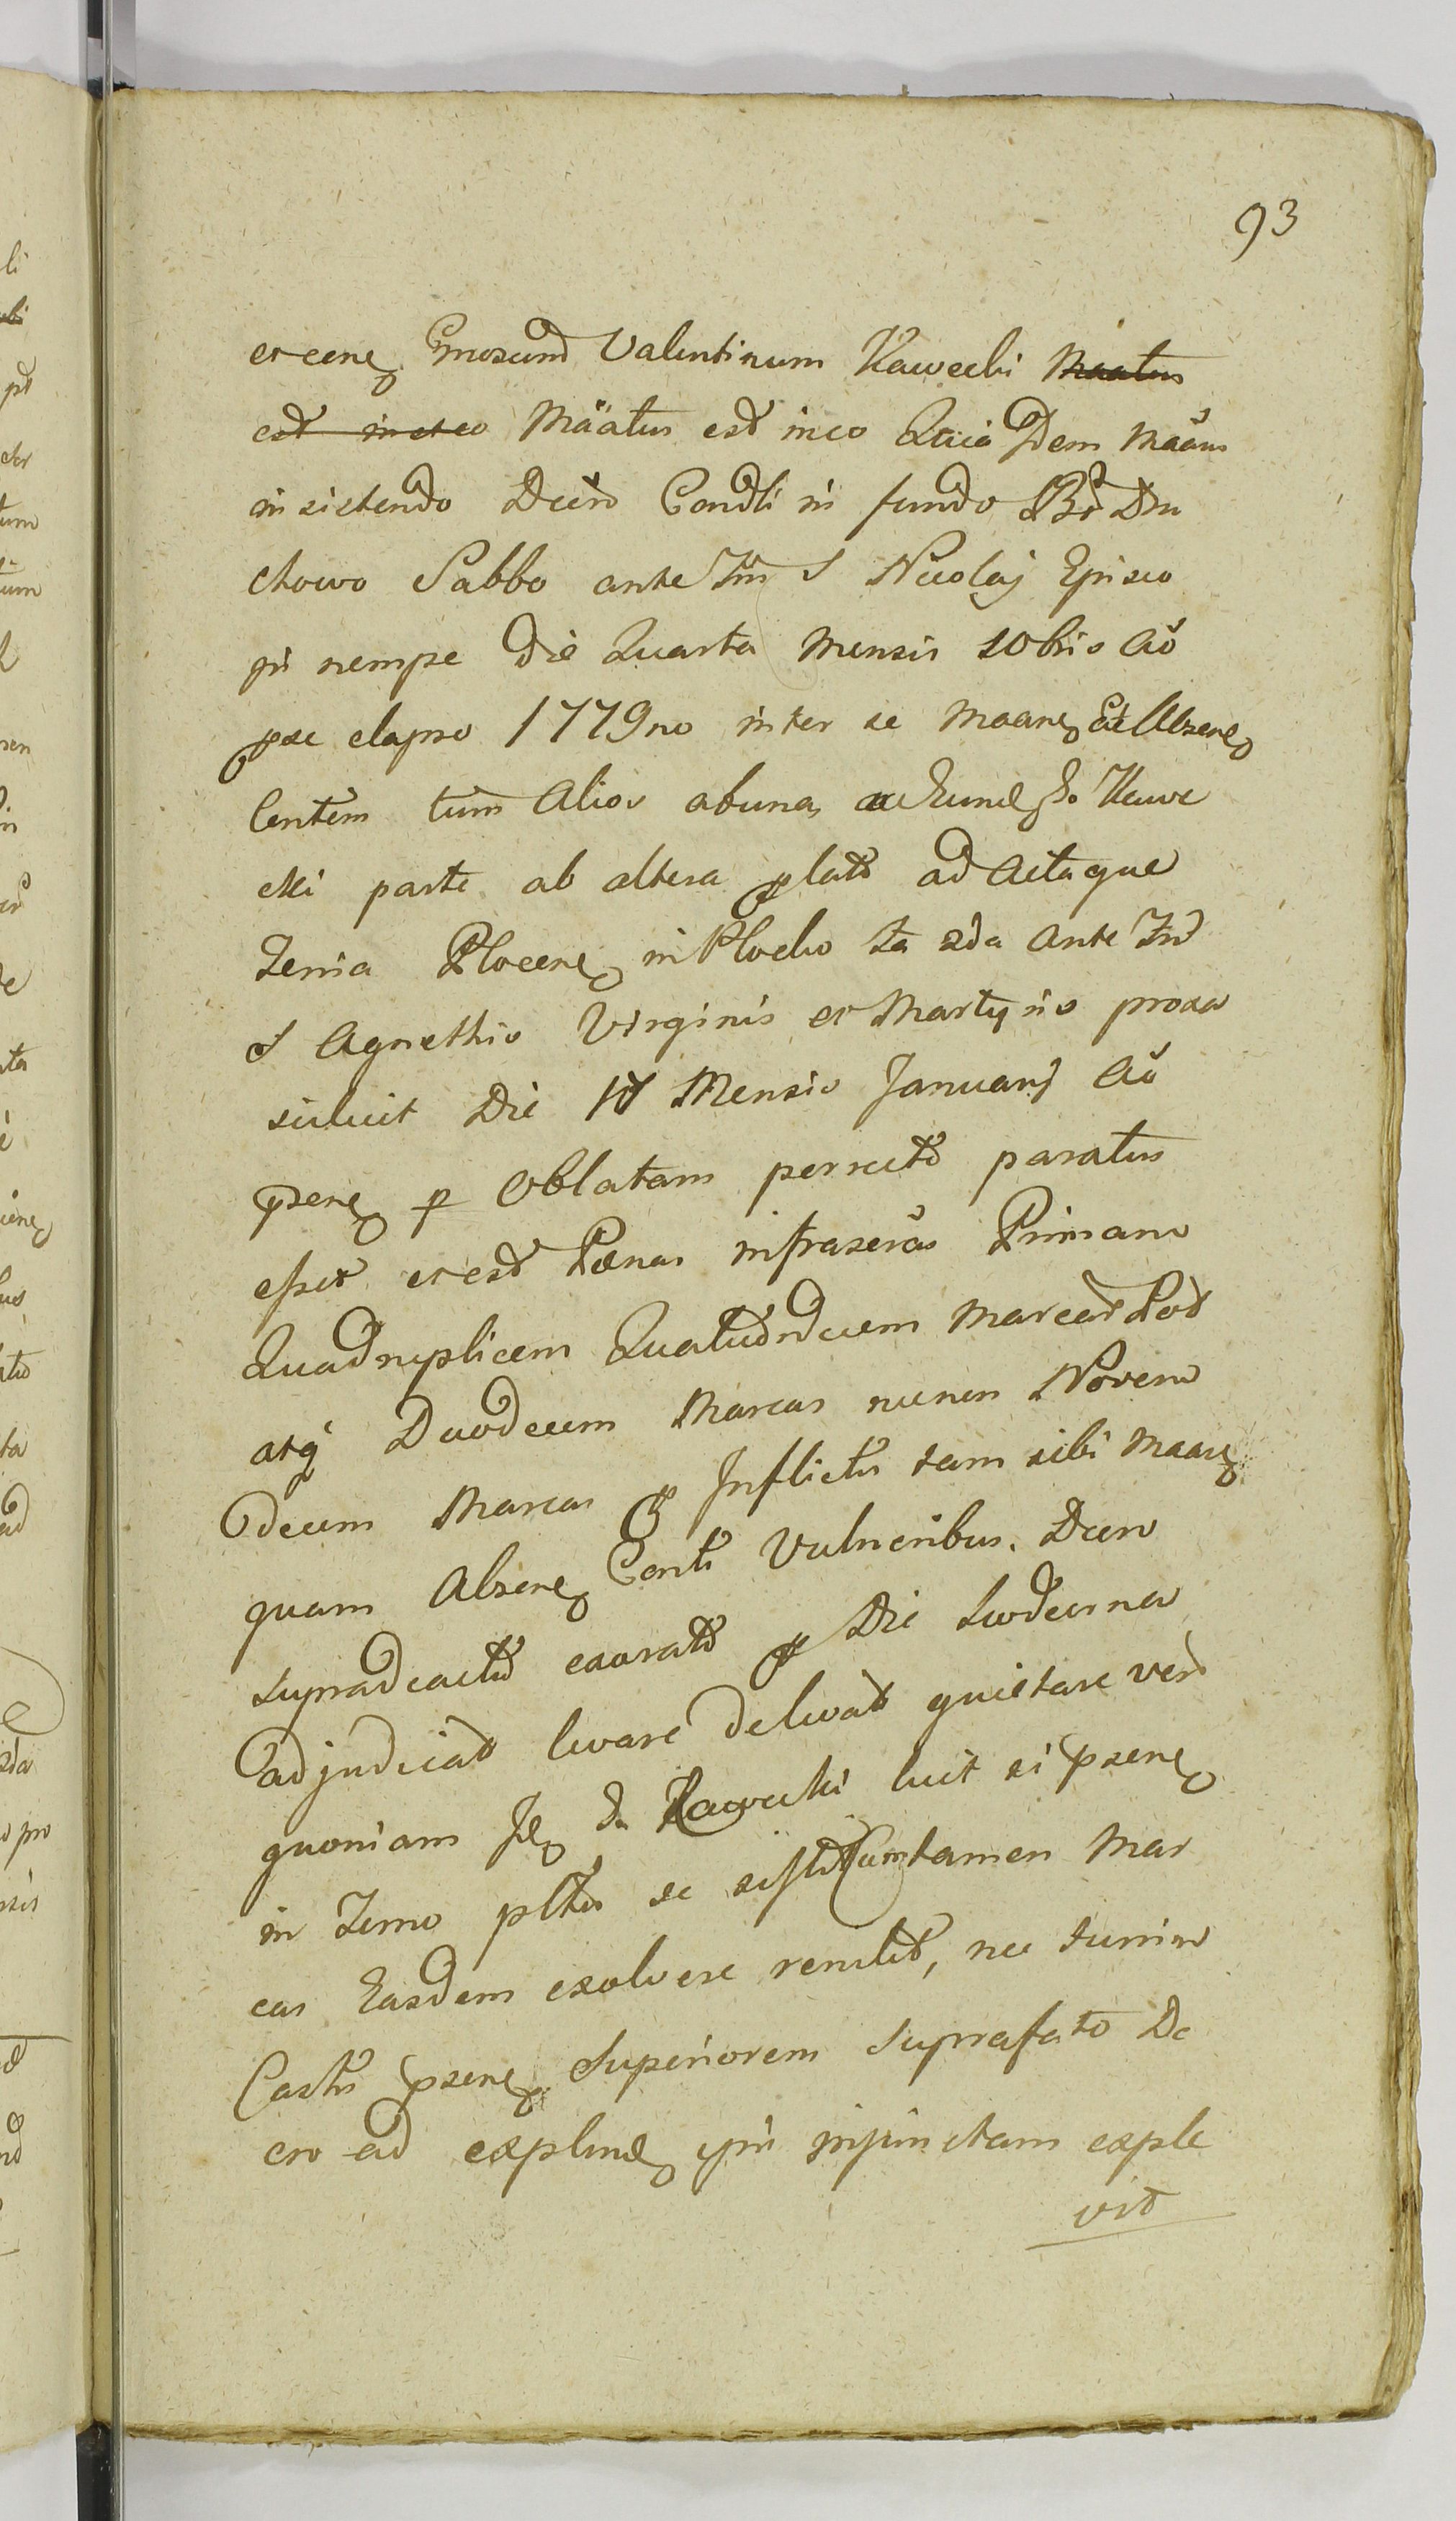 93
et cene Gnosum Valentinum Kawecki Maatus
est in et eo Mäatus est in eo Quia Idem Maäns
insistendo Decto Condli in fundo Bo Dru
chowo Sabbo ante Fm S Nicolaj Episco
pi nempe Die Quarta Mensis 10bris Aō
pse elapso 1779no inter se Maane Et Absene
lentem tum Alios ab una, a Eund Ko Kawe
cki parte ab altera plato ad Acta que
Zenia Plocene in Plocko ta 2da Ante Fm
S Agnethis Virginis et Martyris proxa
siluit Die 17 Mensis Januarij Aō
psene p Oblatam perrecto paratus
esset et est Pænas infrascras Primam
Quadruplicem Quatuordecem Marcar Pot
atq Duodecem Marcas nunen Novem
decem Marcas p Inflictis tam sibi Maane
quam Absene Conti Vulneribus. Decto
supradeacto exarato p Die hodierna
adjudicat levare delevat quietare vero
quoniam Je D. Kawecki licet si psene
in Termo plto se sistit Cum tamen Mar
cas Easdem exolvere renuit, nec turrim
Castri psene Superiorem Suprafato De
cro ad explend ipsi injunctam exple
vit